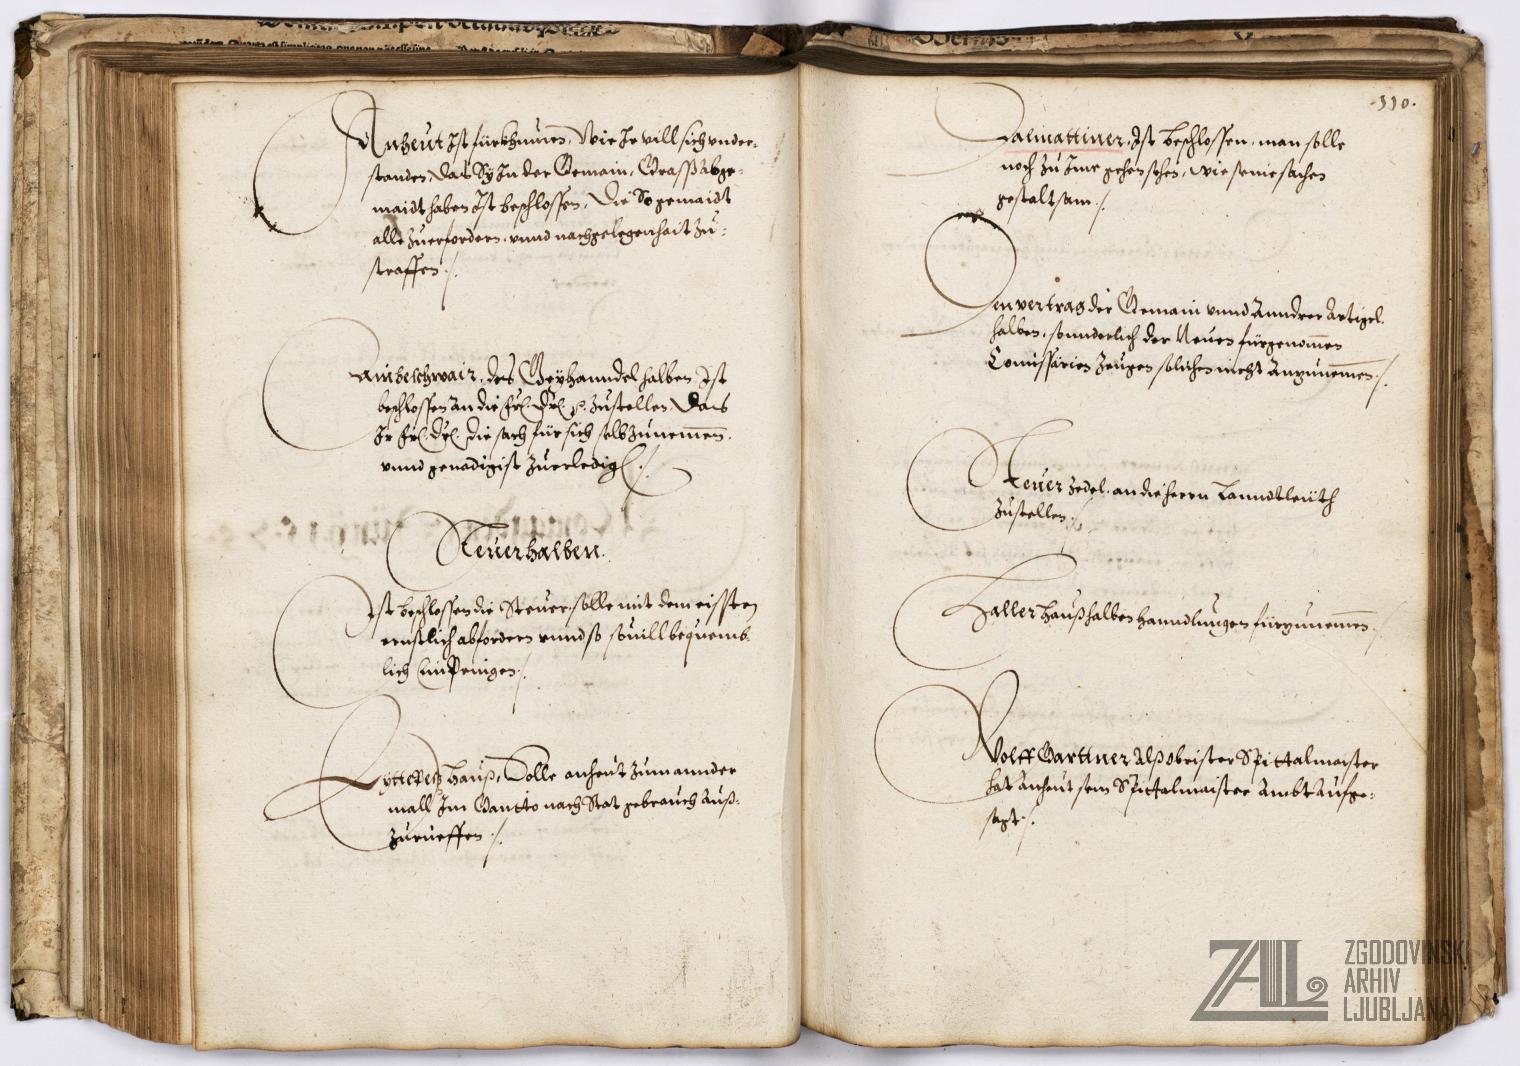 Anheut Ist fürkhumen, Wie Ir vill sich vnder-
standen, das Sy In der Gemain, Graß abge-
maidt haben Ist beschlossen, Die So gemaidt
alle zuerfordern, vnnd nach gelegenhait zu-
straffen ./.
des Geyhanndel halben Ist
beschlossen An die Fr. Dr. zustellen, Das
Ir Fr. Dr. die sach für sich selb zunemen.
vnnd genedigist zuerledig ./.
Steuer halben.
Ist beschlossen die Steuer solle mit dem eissten
ernstlich abfordern vnnd so souill bequemb-
lich ./.
Hauß, Solle anheut zum annder
mall Im Gantto nach Stat gebrauch Auß-
zurueffen ./.
110.
Dalmattiner, Ist beschlossen, man solle
noch zu Ime gehen sehen, wie seine sachen
gestalt sain ./.
Den vertrag der Gemain vnnd Anndrer Artigel
halben, sonnderlich der Neuen fürgenomen
Comissarien Zeugen solichen nicht Anzunemen ./.
Steuer zedel, an die herrn Lanndtleüth
zustellen ./.
Haller Hauß halben Hanndlungen fürzunemen ./.
Wolff Garttner Alß obrister Spittalmaister
hat Anheut sein Spittalmaister Ambt Aufge-
sagt ./.
ZAL
ZGODOVINSKI
ARHIV
LJUBLJANA